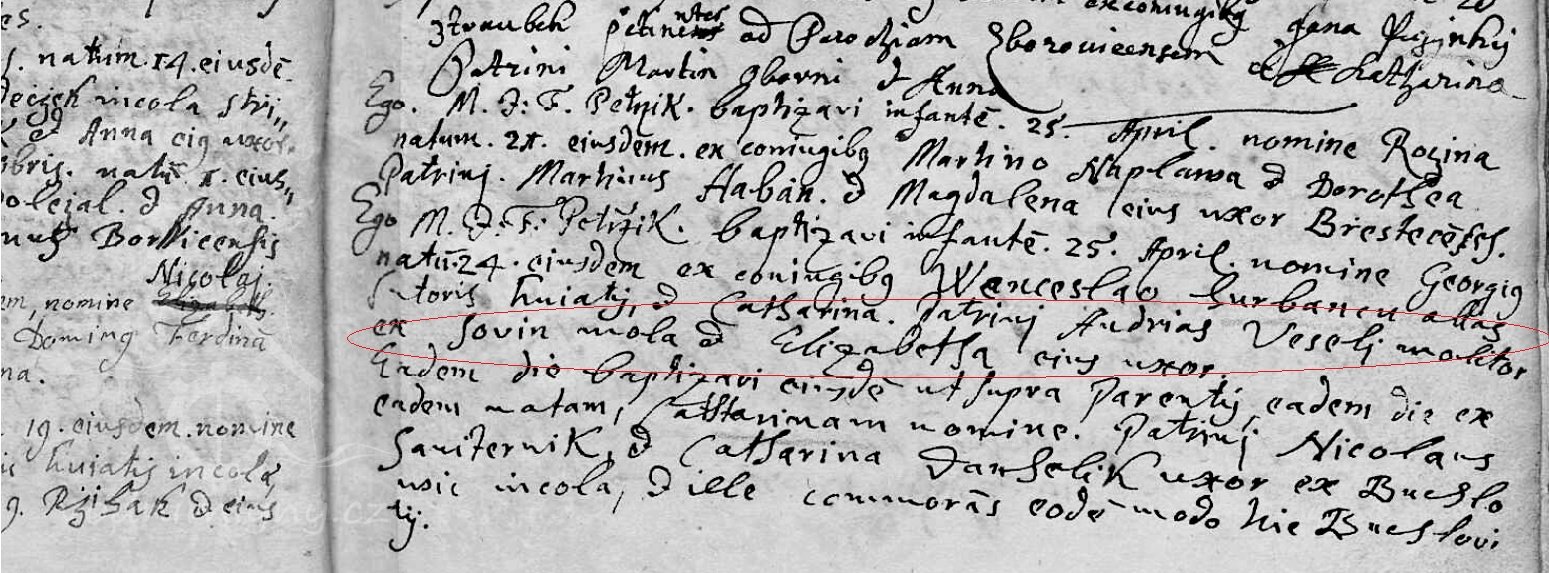 es.
natum. 14. eiusdē
incola
d Anna eiq uxor.
bris. natū. 1. eius„
d Anna.
Nicolaj.
em, nomine
Doming Ferdinā
na.
19. eiusdem. nomine
huiatis incolę
Rzihak d eius
ex coniugibq Jana
ad Parochiam Zborovicensem d Katharina
Patrini Martin d Anna
Ego. M. J: F. Petrzik. baptizavi infantē. 25. April. nomine Rozina
natum. 21. eiusdem. ex coniugibq Martino Naplawa d Dorothea
Patrinj. Martinus Haban. d Magdalena eius uxor Brestecēses.
Ego M. J. F: Petržik. baptizavi infantē. 25. April. nomine Georgiq
natū. 24. eiusdem ex coniugibq Wenceslao Zurbanu alias
sutoris huiatis, d Catharina. Patrinj Andrias Veselj molitor
ex Sovin mola d Elizabetha eius uxor.
Eadem die baptizavi eiusdē ut supra Parentis, eadem die ex
eadem natam, Catharinam nomine. Patrinj Nicolaus
d Catharina Danhelik uxor ex Buchlo
wic incola, d ille commorās eodē modo hic Buchlovi
tij.